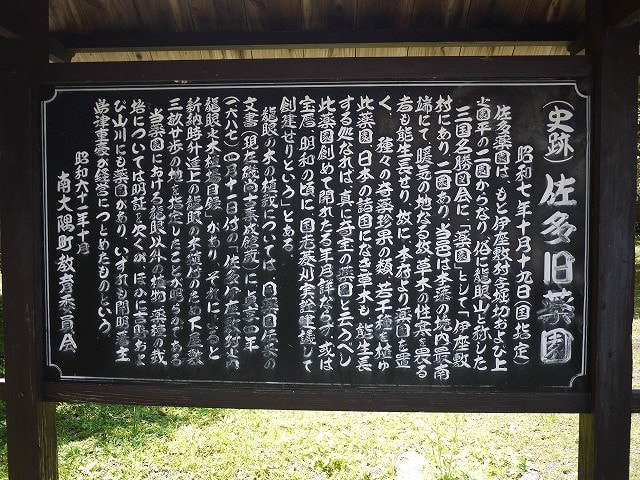 (史跡) 佐多旧薬園
昭和七年十月十九日(国指定)
佐多薬園は、もと伊座敷村含堀切および上
之園平の二園からなり、俗に龍眼山と称した
三国名勝図会に「薬園」として「伊座敷
村にあり、二園あり、当邑は本藩の境内、最南
端にて、暖気の地なる故、草木の性寒を畏る
者も能生長せり、故に、本府より薬園を置
く、種々の奇薬珍果の類、若干種を植ゆ
此薬園、日本の諸国になき草木も、能生長
する処なれば、真に奇宝の薬園と云うべし
此薬園創めて開れたる年月詳ならず、或は
宝暦、明和の頃に、国老
創建せりという」とある
龍眼の木の植栽については、旧薬園住長の
文書(現在磯尚古集成館蔵)に貞享四年
(一六八七)四月十一日付の「佐多伊座敷村之内
龍眼之木植場目録」があり、それによると
新納時升進上の龍眼の木植付のため下屋敷
三畝廿歩の地を指定したことが明らかである
当薬園における龍眼以外の植物、薬種の栽
培については明証を欠くが、ほかに吉野およ
び山川にも薬園があり、いずれも開明藩主
島津重豪が経営につとめたものという。
昭和六十二年十月
南大隅町教育委員会